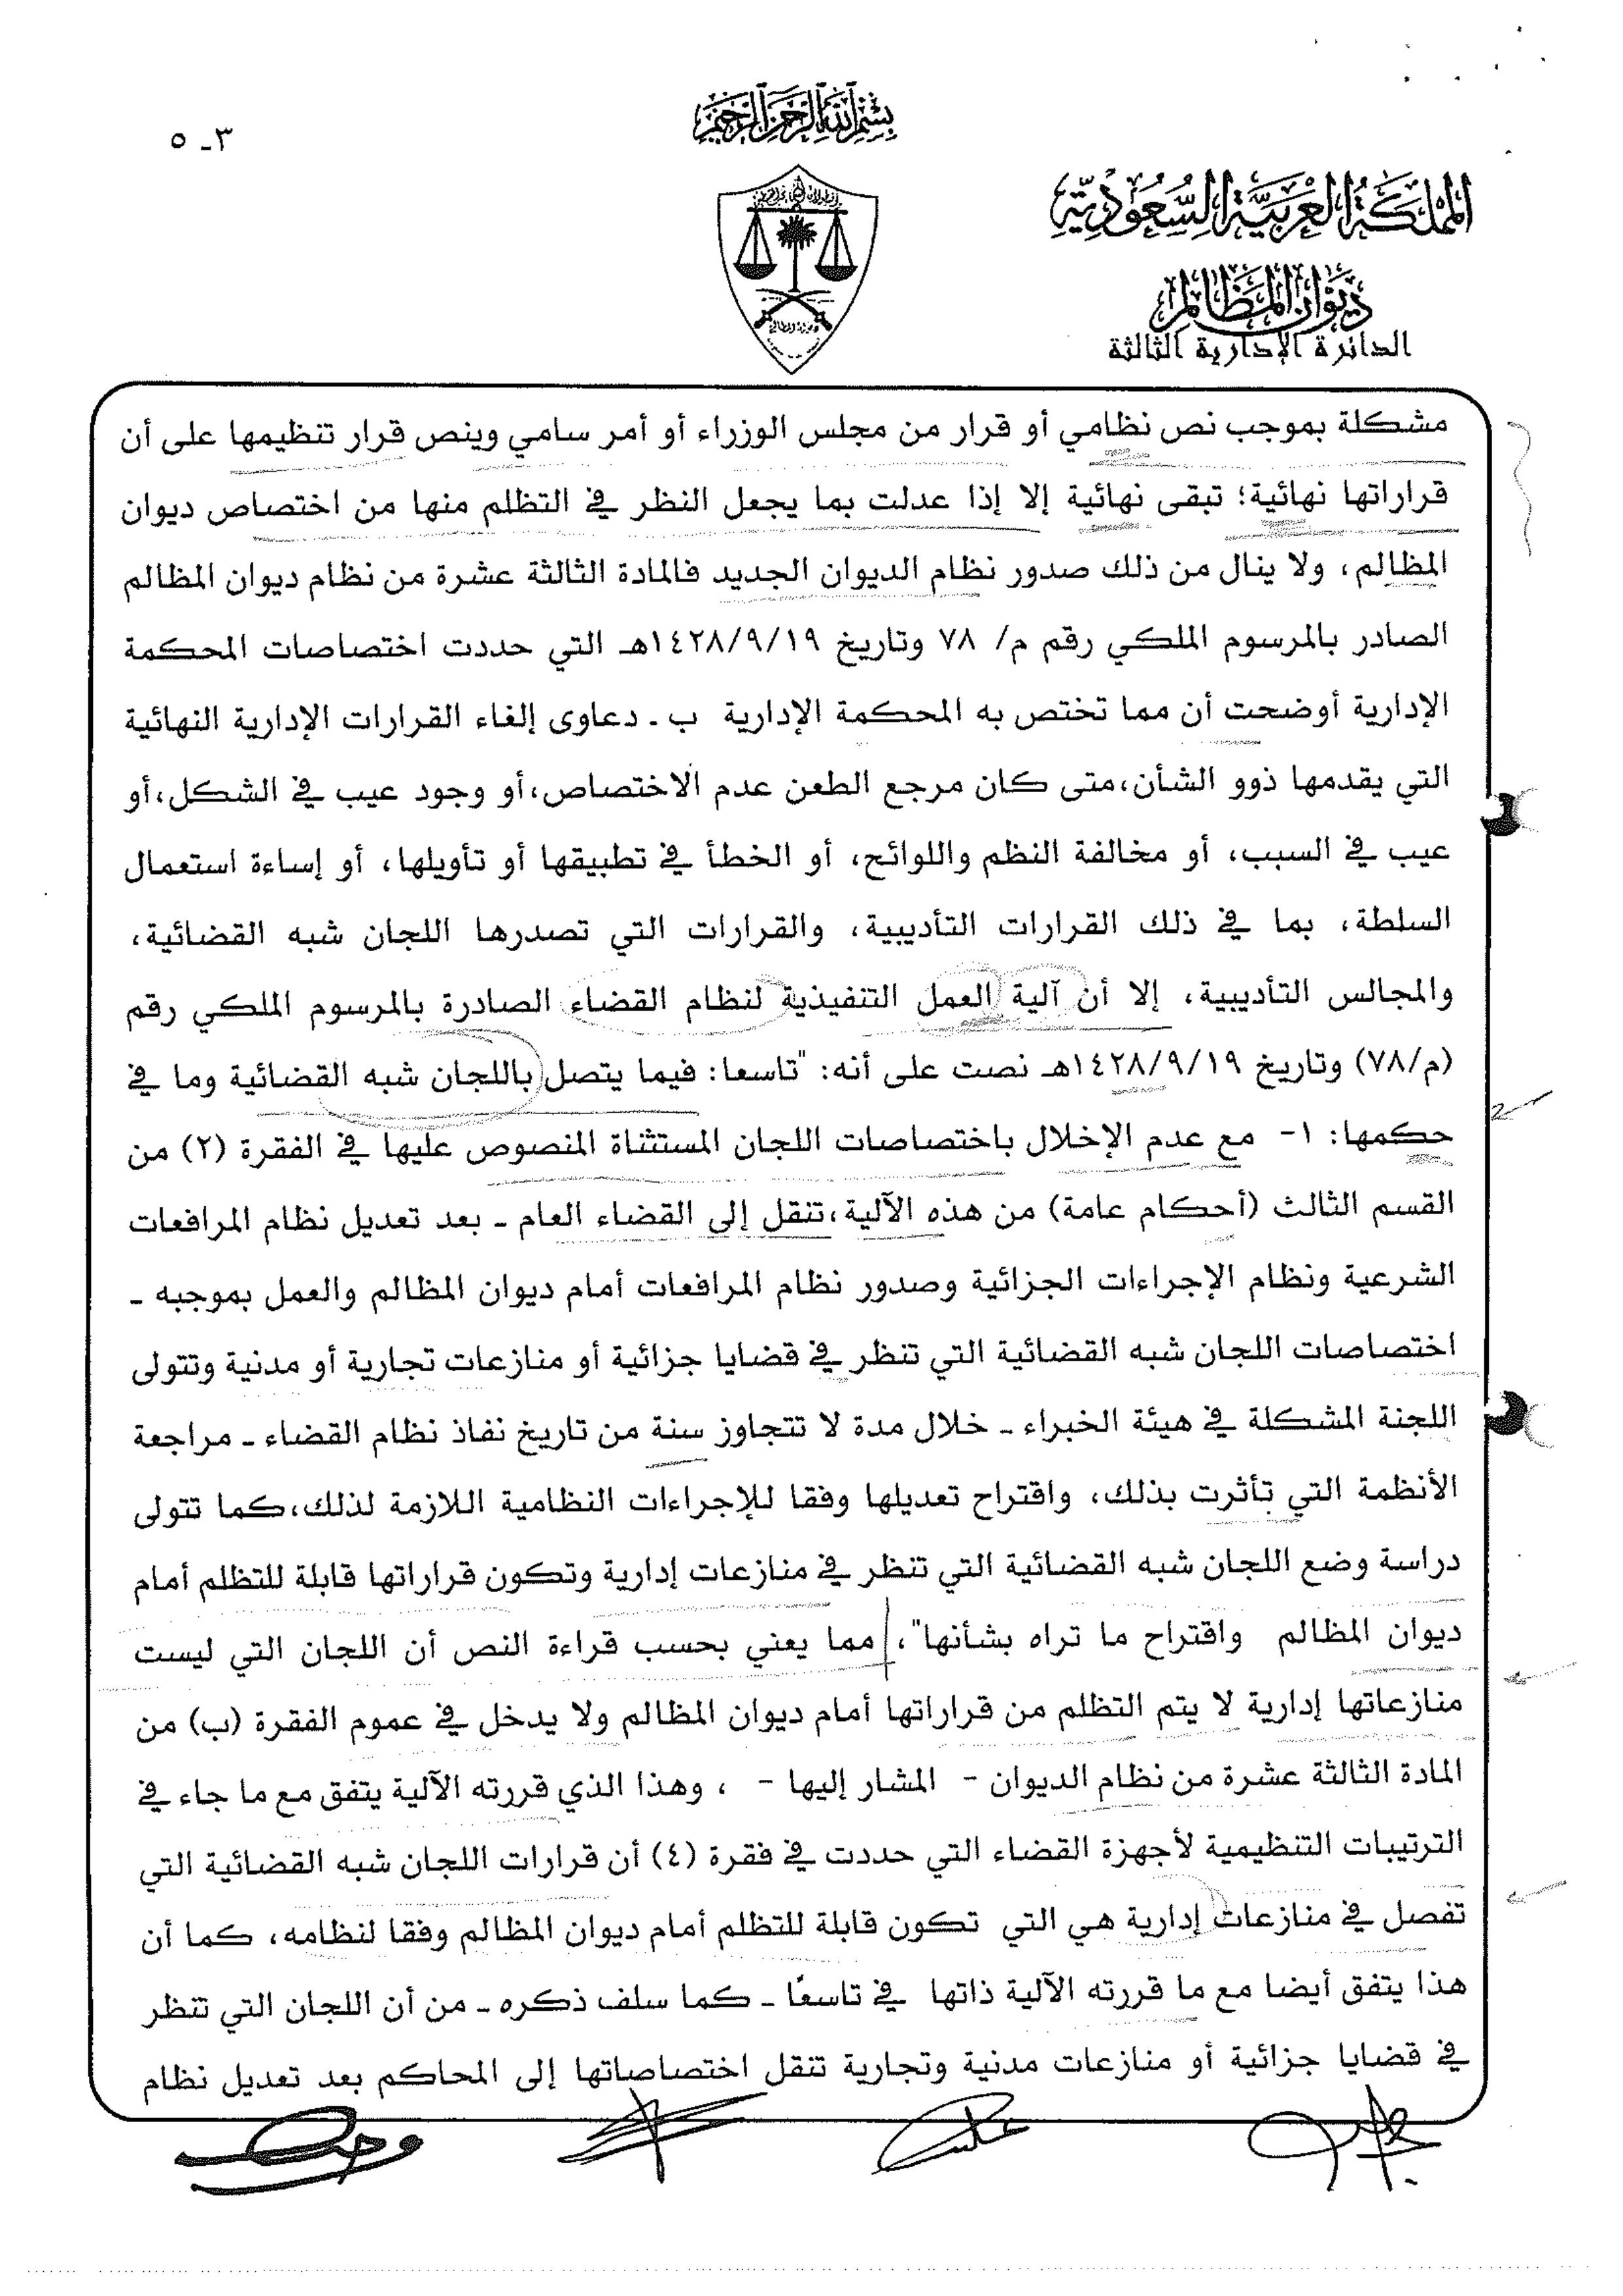 ٣ـ ٥
بسم الله الرحمن الرحيم
المملكة العربية السعودية
ديوان المظالم
الدائرة الإدارية الثالثة
مشكلة بموجب نص نظامي أو قرار من مجلس الوزراء أو أمر سامي وينص قرار تنظيمها على أن
قراراتها نهائية؛ تبقى نهائية إلا إذا عدلت بما يجعل النظر في التظلم منها من اختصاص ديوان
المظالم، ولا ينال من ذلك صدور نظام الديوان الجديد فالمادة الثالثة عشرة من نظام ديوان المظالم
الصادر بالمرسوم الملكي رقم م/ ٧٨ وتاريخ ١٤٢٨/٩/١٩هـ التي حددت اختصاصات المحكمة
الإدارية أوضحت أن مما تختص به المحكمة الإدارية ب ـ دعاوى إلغاء القرارات الإدارية النهائية
التي يقدمها ذوو الشأن،متى كان مرجع الطعن عدم الاختصاص،أو وجود عيب في الشكل،أو
عيب في السبب، أو مخالفة النظم واللوائح، أو الخطأ في تطبيقها أو تأويلها، أو إساءة استعمال
السلطة، بما في ذلك القرارات التأديبية، والقرارات التي تصدرها اللجان شبه القضائية،
والمجالس التأديبية، إلا أن آلية العمل التنفيذية لنظام القضاء الصادرة بالمرسوم الملكي رقم
(م/٧٨) وتاريخ ١٤٢٨/٩/١٩هـ نصت على أنه: "تاسعا: فيما يتصل باللجان شبه القضائية وما في
حكمها: ١- مع عدم الإخلال باختصاصات اللجان المستثناة المنصوص عليها في الفقرة (٢) من
القسم الثالث (أحكام عامة) من هذه الآلية،تنقل إلى القضاء العام ـ بعد تعديل نظام المرافعات
الشرعية ونظام الإجراءات الجزائية وصدور نظام المرافعات أمام ديوان المظالم والعمل بموجبه ـ
اختصاصات اللجان شبه القضائية التي تنظر في قضايا جزائية أو منازعات تجارية أو مدنية وتتولى
اللجنة المشكلة في هيئة الخبراء ـ خلال مدة لا تتجاوز سنة من تاريخ نفاذ نظام القضاء ـ مراجعة
الأنظمة التي تأثرت بذلك، واقتراح تعديلها وفقا للإجراءات النظامية اللازمة لذلك،كما تتولى
دراسة وضع اللجان شبه القضائية التي تنظر في منازعات إدارية وتكون قراراتها قابلة للتظلم أمام
ديوان المظالم واقتراح ما تراه بشأنها"، مما يعني بحسب قراءة النص أن اللجان التي ليست
منازعاتها إدارية لا يتم التظلم من قراراتها أمام ديوان المظالم ولا يدخل في عموم الفقرة (ب) من
المادة الثالثة عشرة من نظام الديوان - المشار إليها - ، وهذا الذي قررته الآلية يتفق مع ما جاء في
الترتيبات التنظيمية لأجهزة القضاء التي حددت في فقرة (٤) أن قرارات اللجان شبه القضائية التي
تفصل في منازعات إدارية هي التي تكون قابلة للتظلم أمام ديوان المظالم وفقا لنظامه، كما أن
هذا يتفق أيضا مع ما قررته الآلية ذاتها في تاسعًا ـ كما سلف ذكره ـ من أن اللجان التي تنظر
في قضايا جزائية أو منازعات مدنية وتجارية تنقل اختصاصاتها إلى المحاكم بعد تعديل نظام